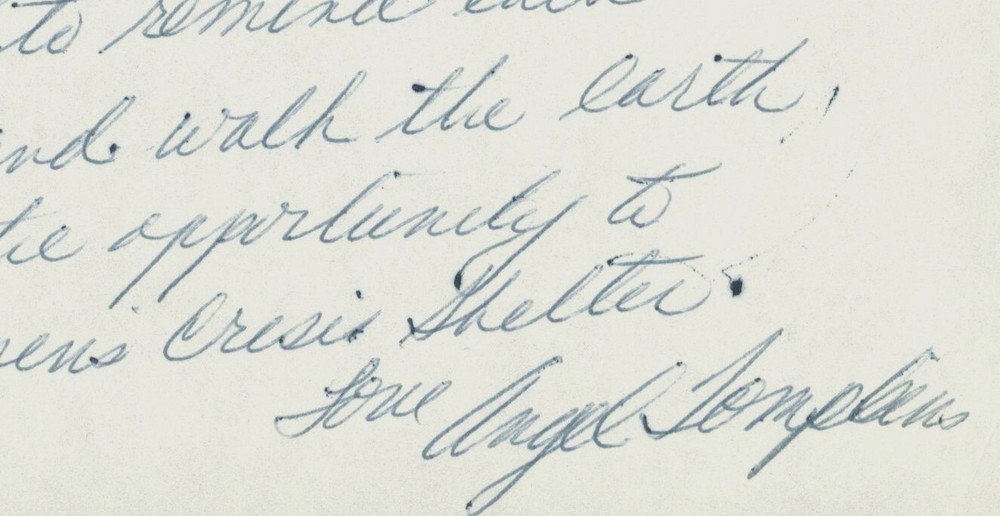 to remind each
nd walk the earth,
the opportunity to
ens Cresis Shelter.
Love Angel Tompkins